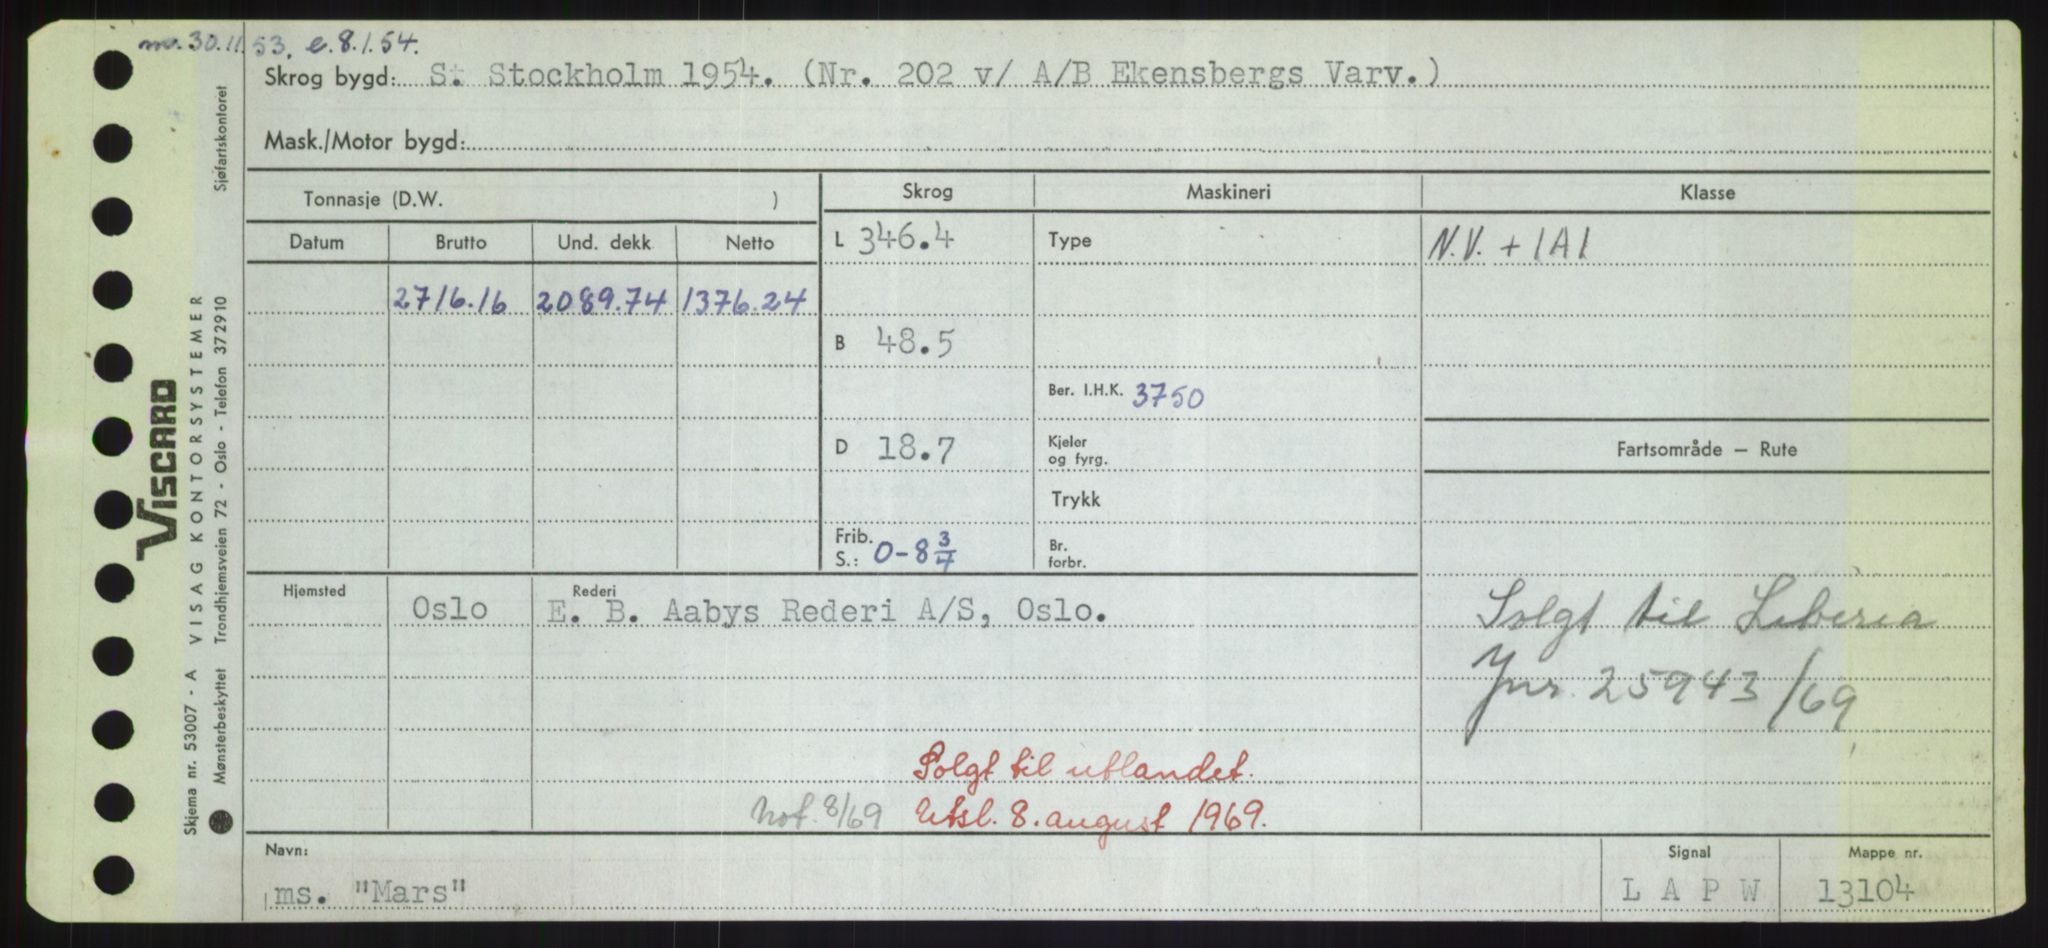 ma. 30.11.53. e. 8.1.54.
Skrog bygd: St Stockholm 1954. (Nr. 202 v/ A/B Ekensbergs Varv.)
Mask./Motor bygd:
Tonnasje (D.W. )
Skrog
Maskineri
Klasse
Datum
Brutto
Und. dekk
Netto
L 346.4
Type
N.V. + 1A1
2716.16 2089.74 1376.24
B 48.5
Ber. I.H.K. 3750
D 18.7
Kjeler
og fyrg.
Fartsområde – Rute
Trykk
Frib.
S.: 0-8 3/4
Br.
forbr.
Hjemsted
Oslo
Rederi
E. B. Aabys Rederi A/S, Oslo.
Solgt til Liberia
Jnr. 25943/69
Solgt til utlandet.
Not. 8/69 Utsl. 8. august 1969.
Navn:
ms. "Mars"
Signal
L A P W
Mappe nr.
13104
VISCARD
Skjema nr. 53007 - A VISAG KONTORSYSTEMER
Mønsterbeskyttet Trondhjemsveien 72 - Oslo - Telefon 372910
Sjøfartskontoret